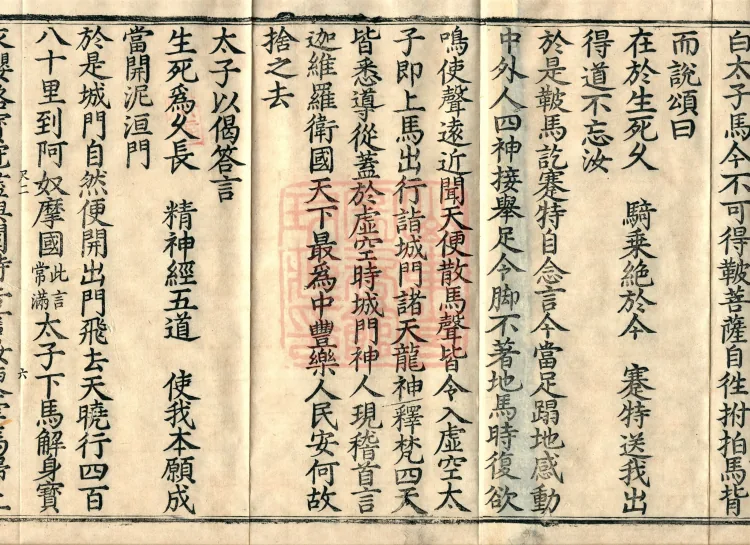 白太子馬今不可得鞁菩薩自徃拊拍馬背
而說頌曰
在於生死久　騎乘絕於今　蹇特送我出
得道不忘汝
於是鞁馬訖蹇特自念言今當足蹋地感動
中外人四神接舉足令脚不著地馬時復欲
鳴使聲遠近聞天便散馬聲皆令入虛空太
子即上馬出行詣城門諸天龍神釋梵四天
皆悉導從蓋於虛空時城門神人現稽首言
迦維羅衛國天下最爲中豐樂人民安何故
捨之去
太子以偈答言
生死爲久長　精神經五道　使我本願成
當開泥洹門
於是城門自然便開出門飛去天曉行四百
八十里到阿奴摩國此言常滿太子下馬解身寶
六